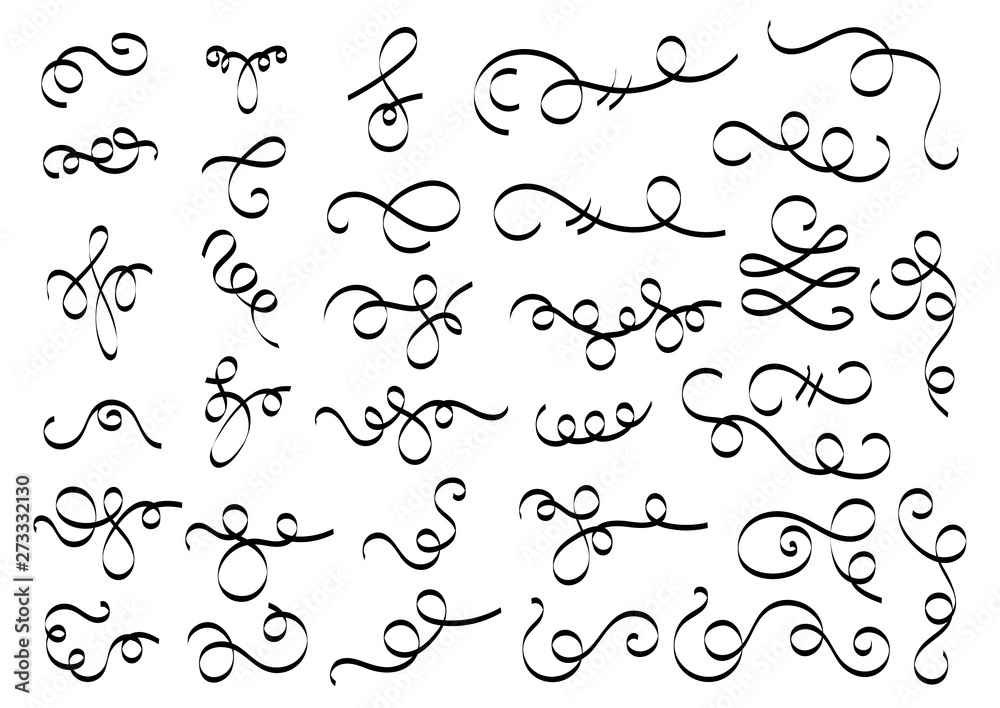 Adobe Stock | #273332130